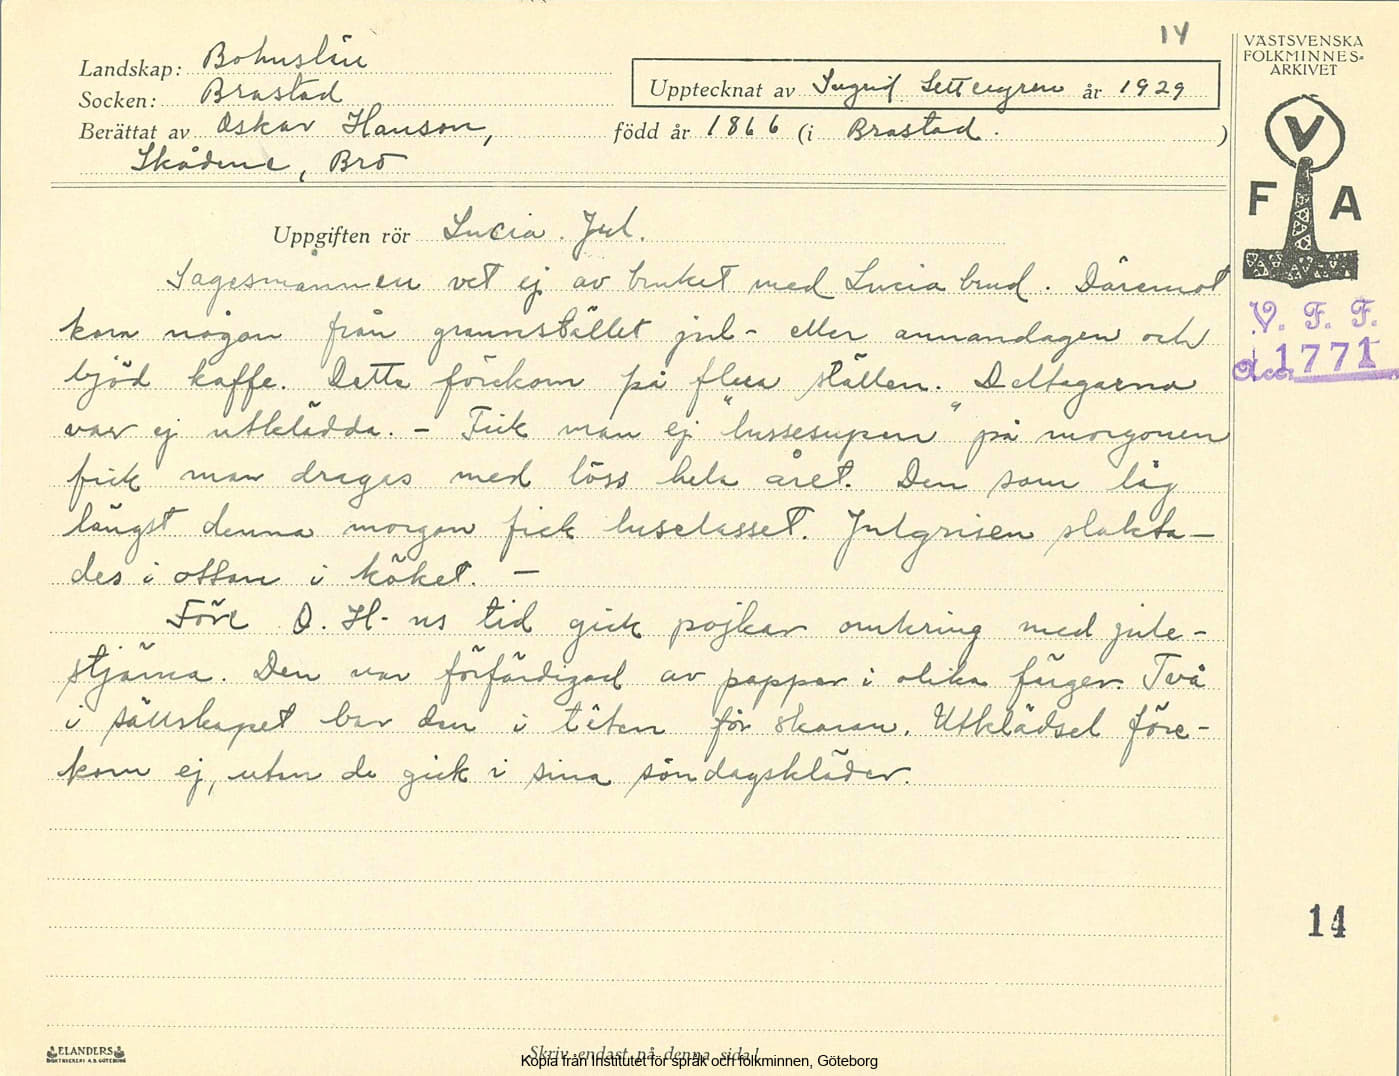 14
VÄSTSVENSKA
FOLKMINNES-
ARKIVET
Landskap: Bohuslän
Socken: Brastad
Upptecknat av Ingrid Settergren år 1929
Berättat av Oskar Hanson, född år 1866 (i Brastad. )
Skådene, Bro
V
F A
Uppgiften rör Lucia. Jul.
Sagesmannen vet ej av bruket med Lucia brud. Däremot
kom någon från grannstället jul- eller annandagen och
bjöd kaffe. Detta förekom på flera ställen. Deltagarna
var ej utklädda. – Fick man ej "lussesupen" på morgonen
fick man dragas med löss hela året. Den som låg
längst denna morgon fick luselasset. Julgrisen slakta-
des i ottan i köket. –
Före O. H-ns tid gick pojkar omkring med jule-
stjärna. Den var förfärdigad av papper i olika färger. Två
i sällskapet bar den i têten för skaran. Utklädsel före-
kom ej, utan de gick i sina söndagskläder.
V. F. F.
Acc. 1771
14
ELANDERS
BOKTRYCKERI A.B. GÖTEBORG
Skriv endast på denna sida!
Kopia från Institutet för språk och folkminnen, Göteborg